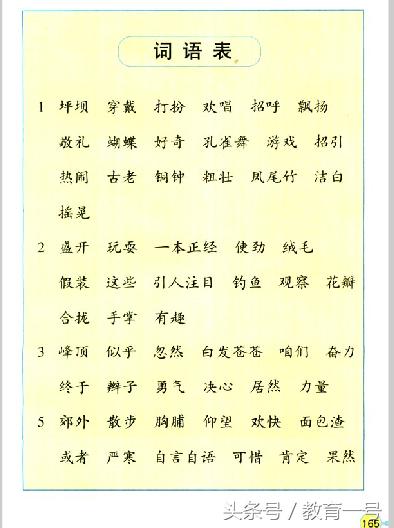 词语表
1 坪坝 穿戴 打扮 欢唱 招呼 飘扬
敬礼 蝴蝶 好奇 孔雀舞 游戏 招引
热闹 古老 铜钟 粗壮 凤尾竹 洁白
摇晃
2 盛开 玩耍 一本正经 使劲 绒毛
假装 这些 引人注目 钓鱼 观察 花瓣
合拢 手掌 有趣
3 峰顶 似乎 忽然 白发苍苍 咱们 奋力
终于 辫子 勇气 决心 居然 力量
5 郊外 散步 胸脯 仰望 欢快 面包渣
或者 严寒 自言自语 可惜 肯定 果然
165
头条号 / 教育一号